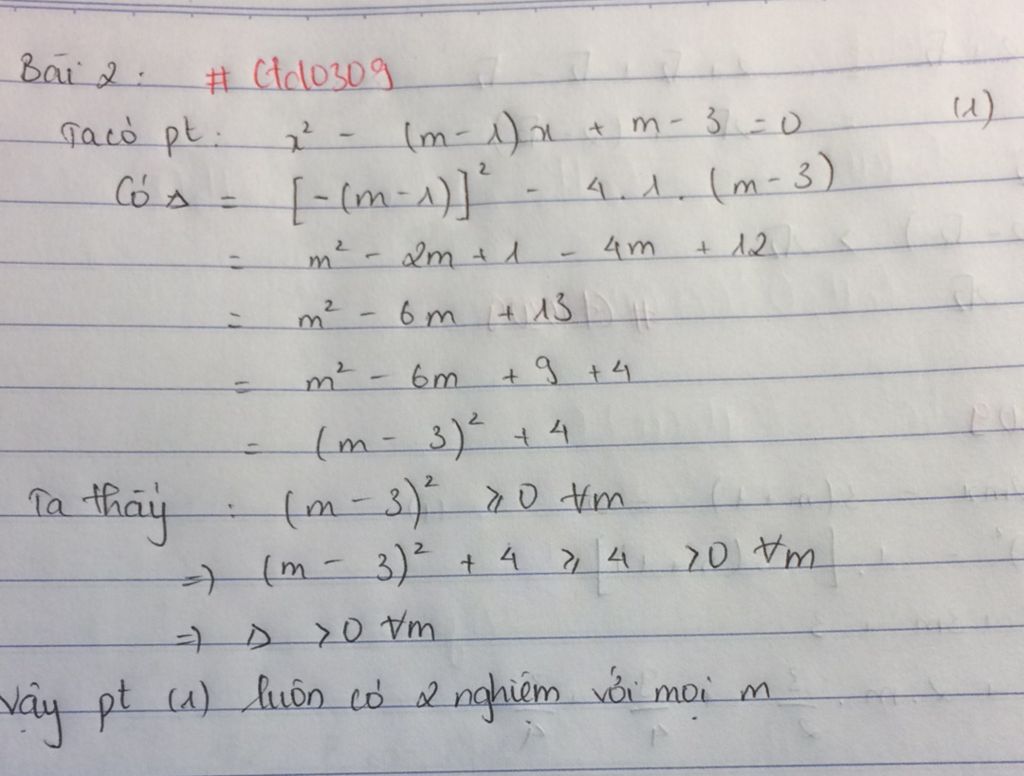 Bài 2: # Ctd0309
Ta có pt: x² - (m - 1)x + m - 3 = 0 (1)
Có Δ = [-(m - 1)]² - 4. 1. (m - 3)
= m² - 2m + 1 - 4m + 12
= m² - 6m + 13
= m² - 6m + 9 + 4
= (m - 3)² + 4
Ta thấy : (m - 3)² ⩾ 0 ∀m
=> (m - 3)² + 4 ⩾ 4 > 0 ∀m
=> Δ > 0 ∀m
Vậy pt (1) luôn có 2 nghiệm với mọi m